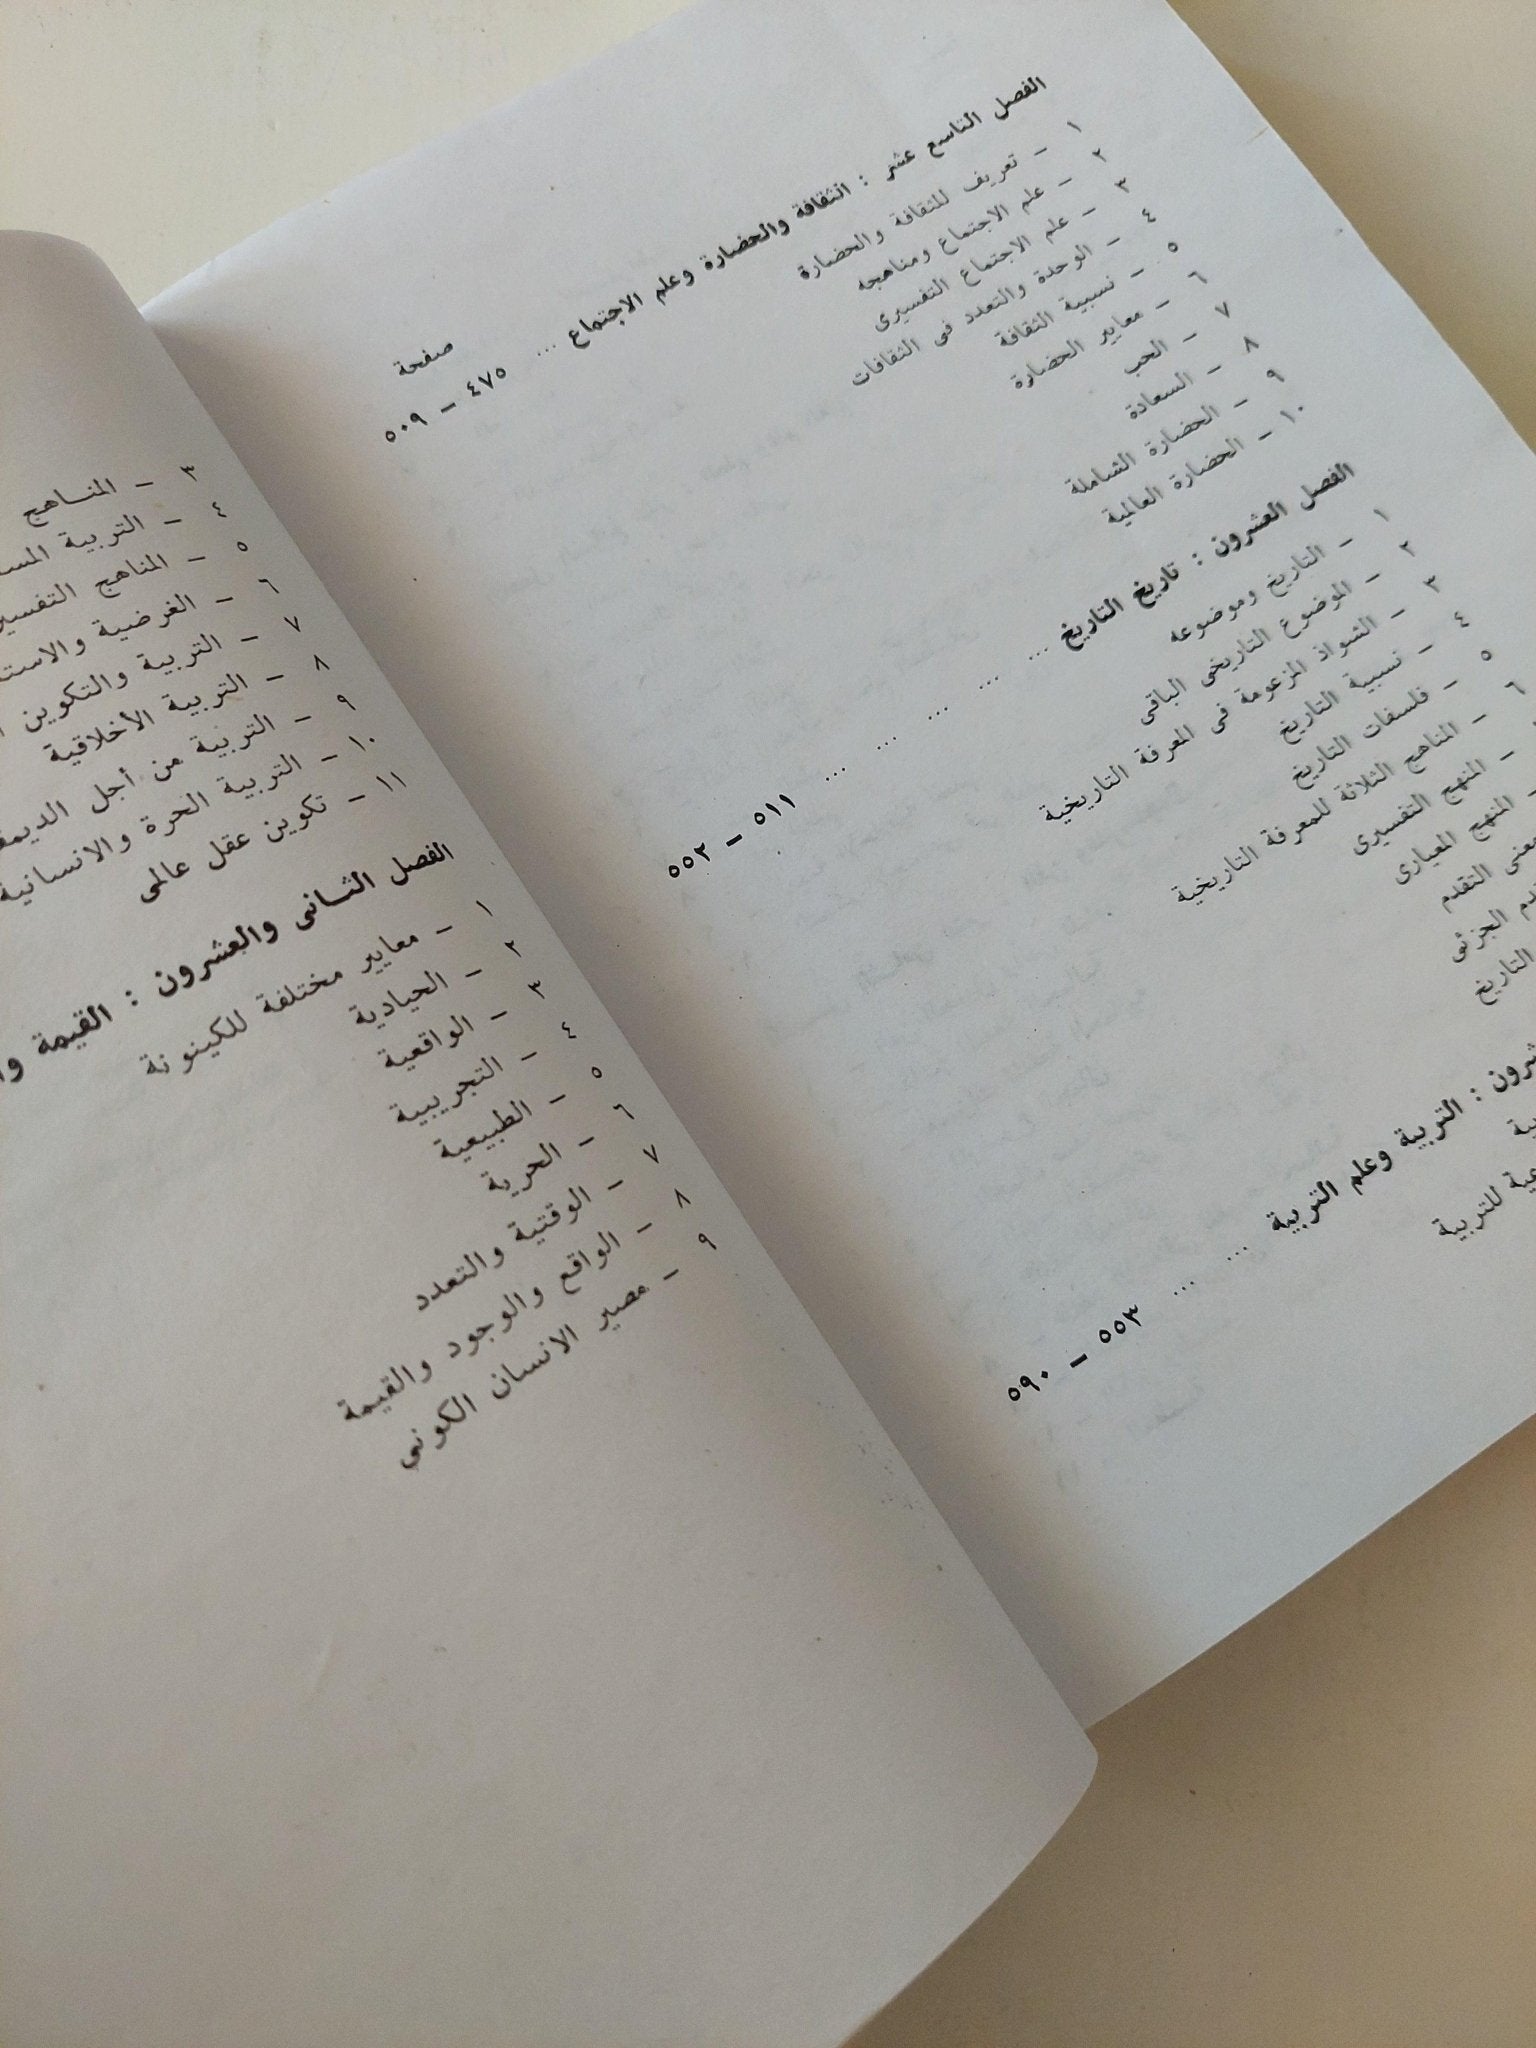 صفحة
الفصل التاسع عشر : الثقافة والحضارة وعلم الاجتماع ... ٤٧٥ – ٥٠٩
١ – تعريف للثقافة والحضارة
٢ – علم الاجتماع ومناهجه
٣ – علم الاجتماع التفسيرى
٤ – الوحدة والتعدد فى الثقافات
٥ – نسبية الثقافة
٦ – معايير الحضارة
٧ – الحب
٨ – السعادة
٩ – الحضارة الشاملة
١٠ – الحضارة العالمية
الفصل العشرون : تاريخ التاريخ ... ... ... ... ... ٥١١ – ٥٥٢
١ – التاريخ وموضوعه
٢ – الموضوع التاريخى الباقى
٣ – الشواذ المزعومة فى المعرفة التاريخية
٤ – نسبية التاريخ
٥ – فلسفات التاريخ
٦ – المناهج الثلاثة للمعرفة التاريخية
– المنهج التفسيرى
– المنهج المعيارى
معنى التقدم
الجزئى
التاريخ
: التربية وعلم التربية ... ... ٥٥٣ – ٥٩٠
للتربية
٣ – المناهج
٤ – التربية
٥ – المناهج
٦ – الغرضية
٧ – التربية والتكوين
٨ – التربية الأخلاقية
٩ – التربية من أجل
١٠ – التربية الحرة والانسانية
١١ – تكوين عقل عالمى
الفصل الثانى والعشرون : القيمة
١ – معايير مختلفة للكينونة
٢ – الحيادية
٣ – الواقعية
٤ – التجريبية
٥ – الطبيعية
٦ – الحرية
٧ – الوقتية والتعدد
٨ – الواقع والوجود والقيمة
٩ – مصير الانسان الكونى